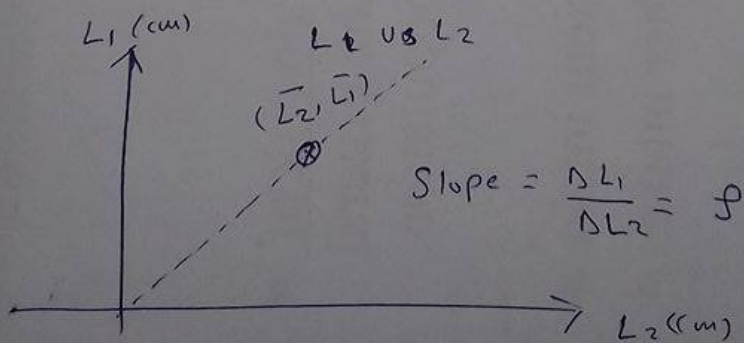 L₁ (cm)
L₁ vs L₂
(L̄₂, L̄₁)
Slope = ΔL₁/ΔL₂ = ρ
L₂ (cm)